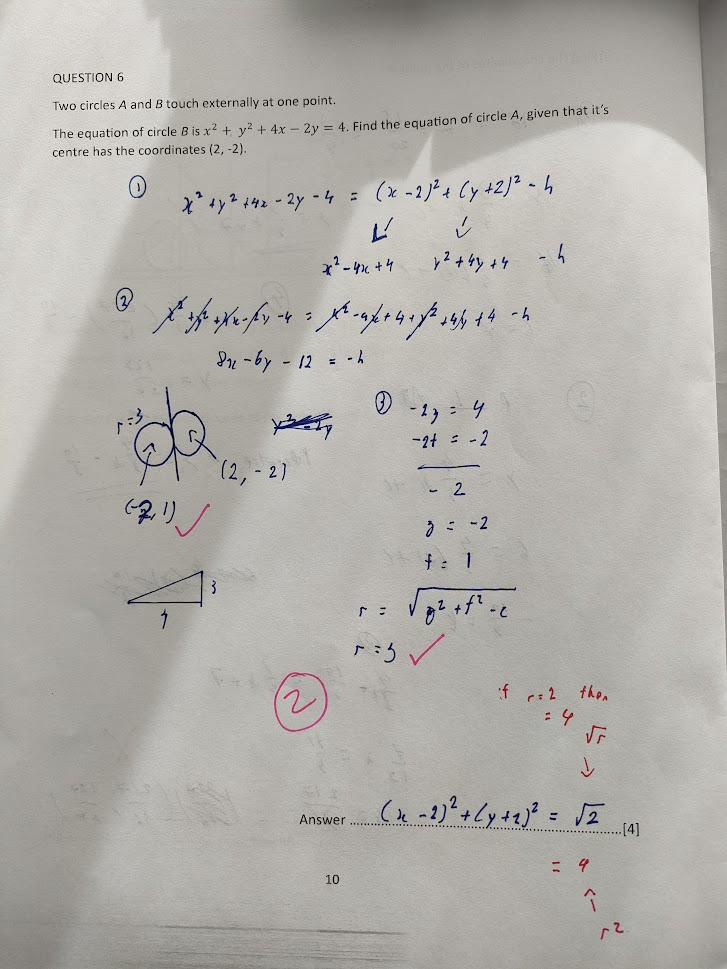 QUESTION 6
Two circles A and B touch externally at one point.
The equation of circle B is x² + y² + 4x − 2y = 4. Find the equation of circle A, given that it's
centre has the coordinates (2, -2).
① x² + y² + 4x - 2y - 4 = (x - 2)² + (y + 2)² - h
x² - 4x + 4 y² + 4y + 4 - h
② x² + y² + 4x - 2y - 4 = x² - 4x + 4 + y² + 4y + 4 - h
8x - 6y - 12 = -h
r = 3
(2, -2)
(-2, 1) ✓
3
4
③ -2g = 4
-2f = -2
- 2
g = -2
f = 1
r = √g² + f² - c
r = 3 ✓
2
if r = 2 then
= 4
√r
↓
Answer (x - 2)² + (y + 2)² = √2 [4]
= 4
↑
r²
10